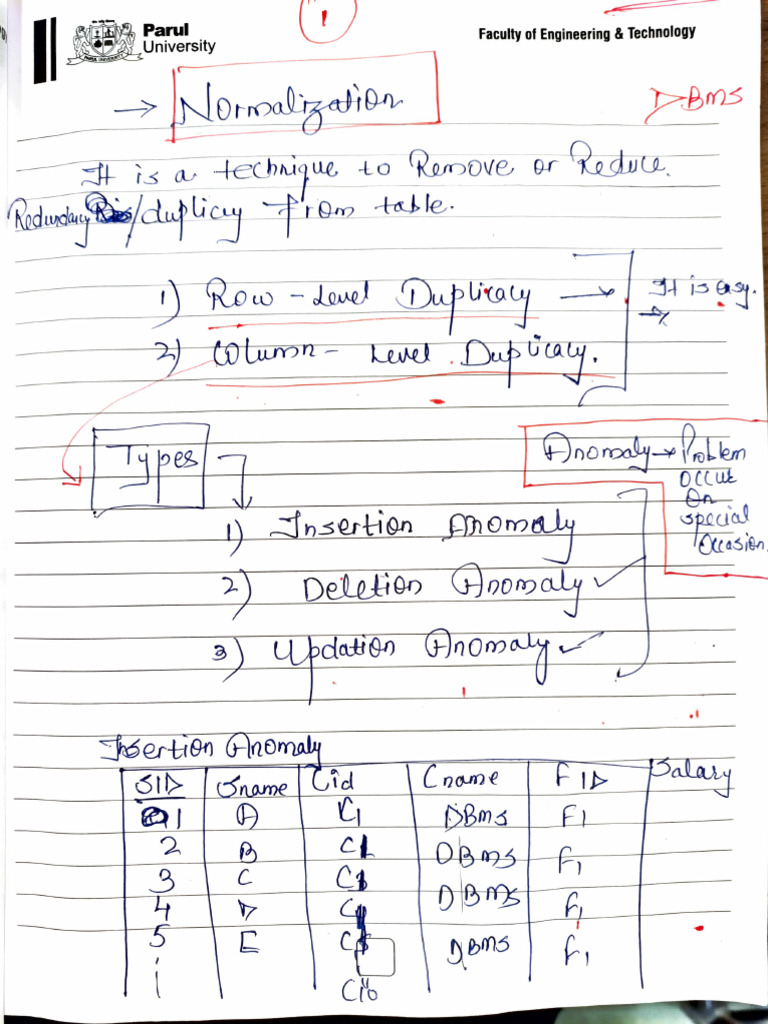 1
Parul
University
PARUL UNIVERSITY
Faculty of Engineering & Technology
→ Normalization
DBMS
It is a technique to Remove or Reduce.
Redundancy /duplicy from table.
1) Row-Level Duplicacy → It is easy.
2) Column-Level Duplicacy.
Types
Anomaly → Problem
occur
on
special
occasion.
1) Insertion Anomaly
2) Deletion Anomaly ✓
3) Updation Anomaly ✓
Insertion Anomaly
SID Sname Cid Cname FID Salary
1 A C1 DBMS F1
2 B C1 DBMS F1
3 C C1 DBMS F1
4 D DBMS F1
5 E DBMS F1
C10